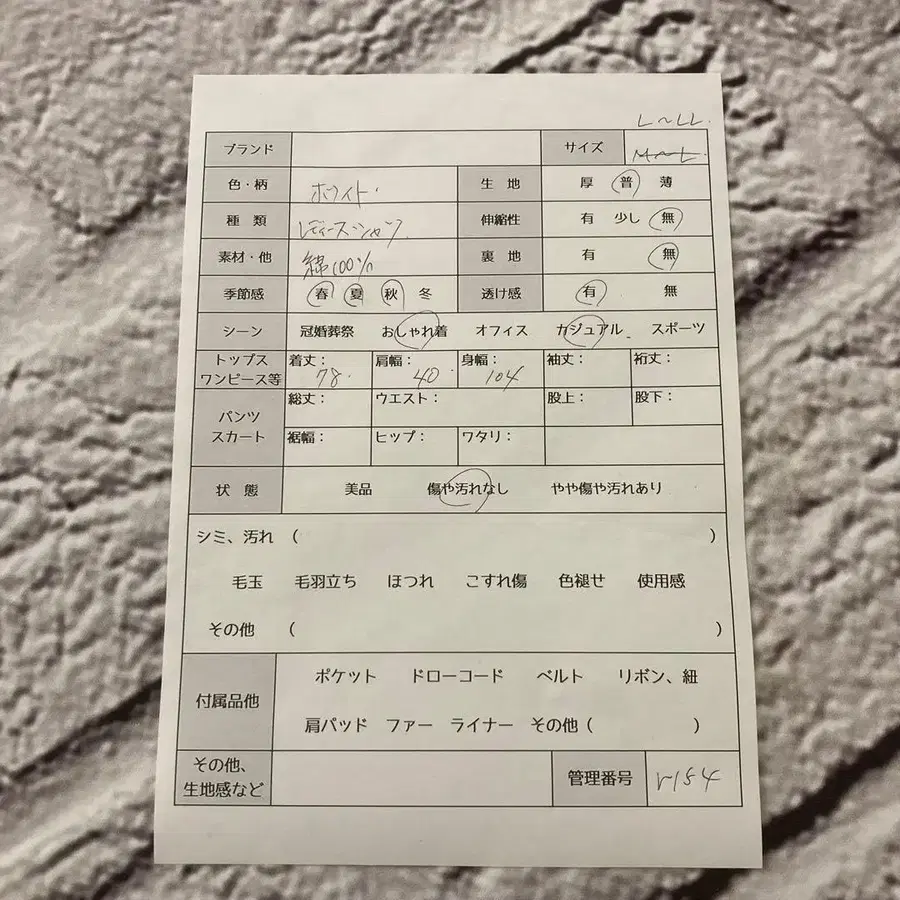 L〜LL
ブランド サイズ M〜L
色・柄 ホワイト 生 地 厚 普 薄
種 類 レディースシャツ 伸縮性 有 少し 無
素材・他 綿100% 裏 地 有 無
季節感 春 夏 秋 冬 透け感 有 無
シーン 冠婚葬祭 おしゃれ着 オフィス カジュアル スポーツ
トップス 着丈： 肩幅： 身幅： 袖丈： 裄丈：
ワンピース等 78 40 104
総丈： ウエスト： 股上： 股下：
パンツ
スカート
裾幅： ヒップ： ワタリ：
状 態 美品 傷や汚れなし やや傷や汚れあり
シミ、汚れ （ ）
毛玉 毛羽立ち ほつれ こすれ傷 色褪せ 使用感
その他 （ ）
付属品他 ポケット ドローコード ベルト リボン、紐
肩パッド ファー ライナー その他（ ）
その他、
生地感など 管理番号 r154